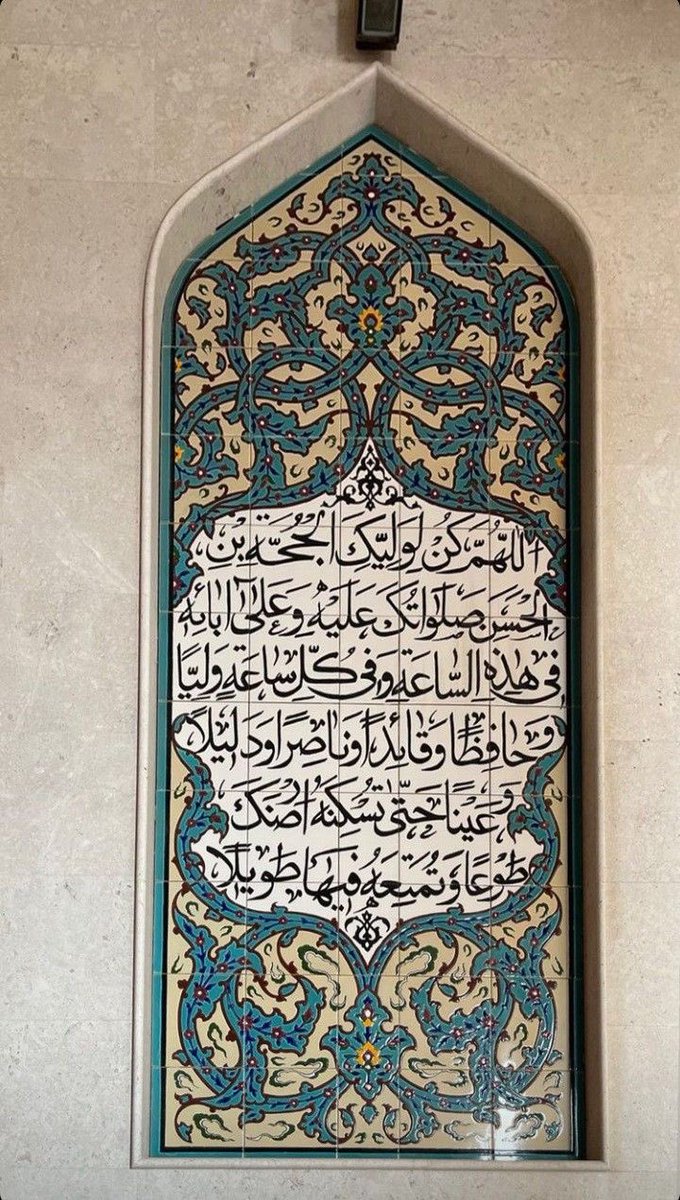 اَللّٰهُمَّ كُنْ لِوَلِيِّكَ الْحُجَّةِ بْنِ
الْحَسَنِ صَلَوٰاتُكَ عَلَيْهِ وَعَلىٰ اٰبائِهِ
فى هٰذِهِ السّاعَةِ وَفى كُلِّ ساعَةٍ وَلِيًّا
وَحافِظًا وَقائِدًا وَناصِرًا وَدَليلًا
وَعَيْنًا حَتّى تُسْكِنَهُ اَرْضَكَ
طَوْعًا وَتُمَتِّعَهُ فيها طَويلًا